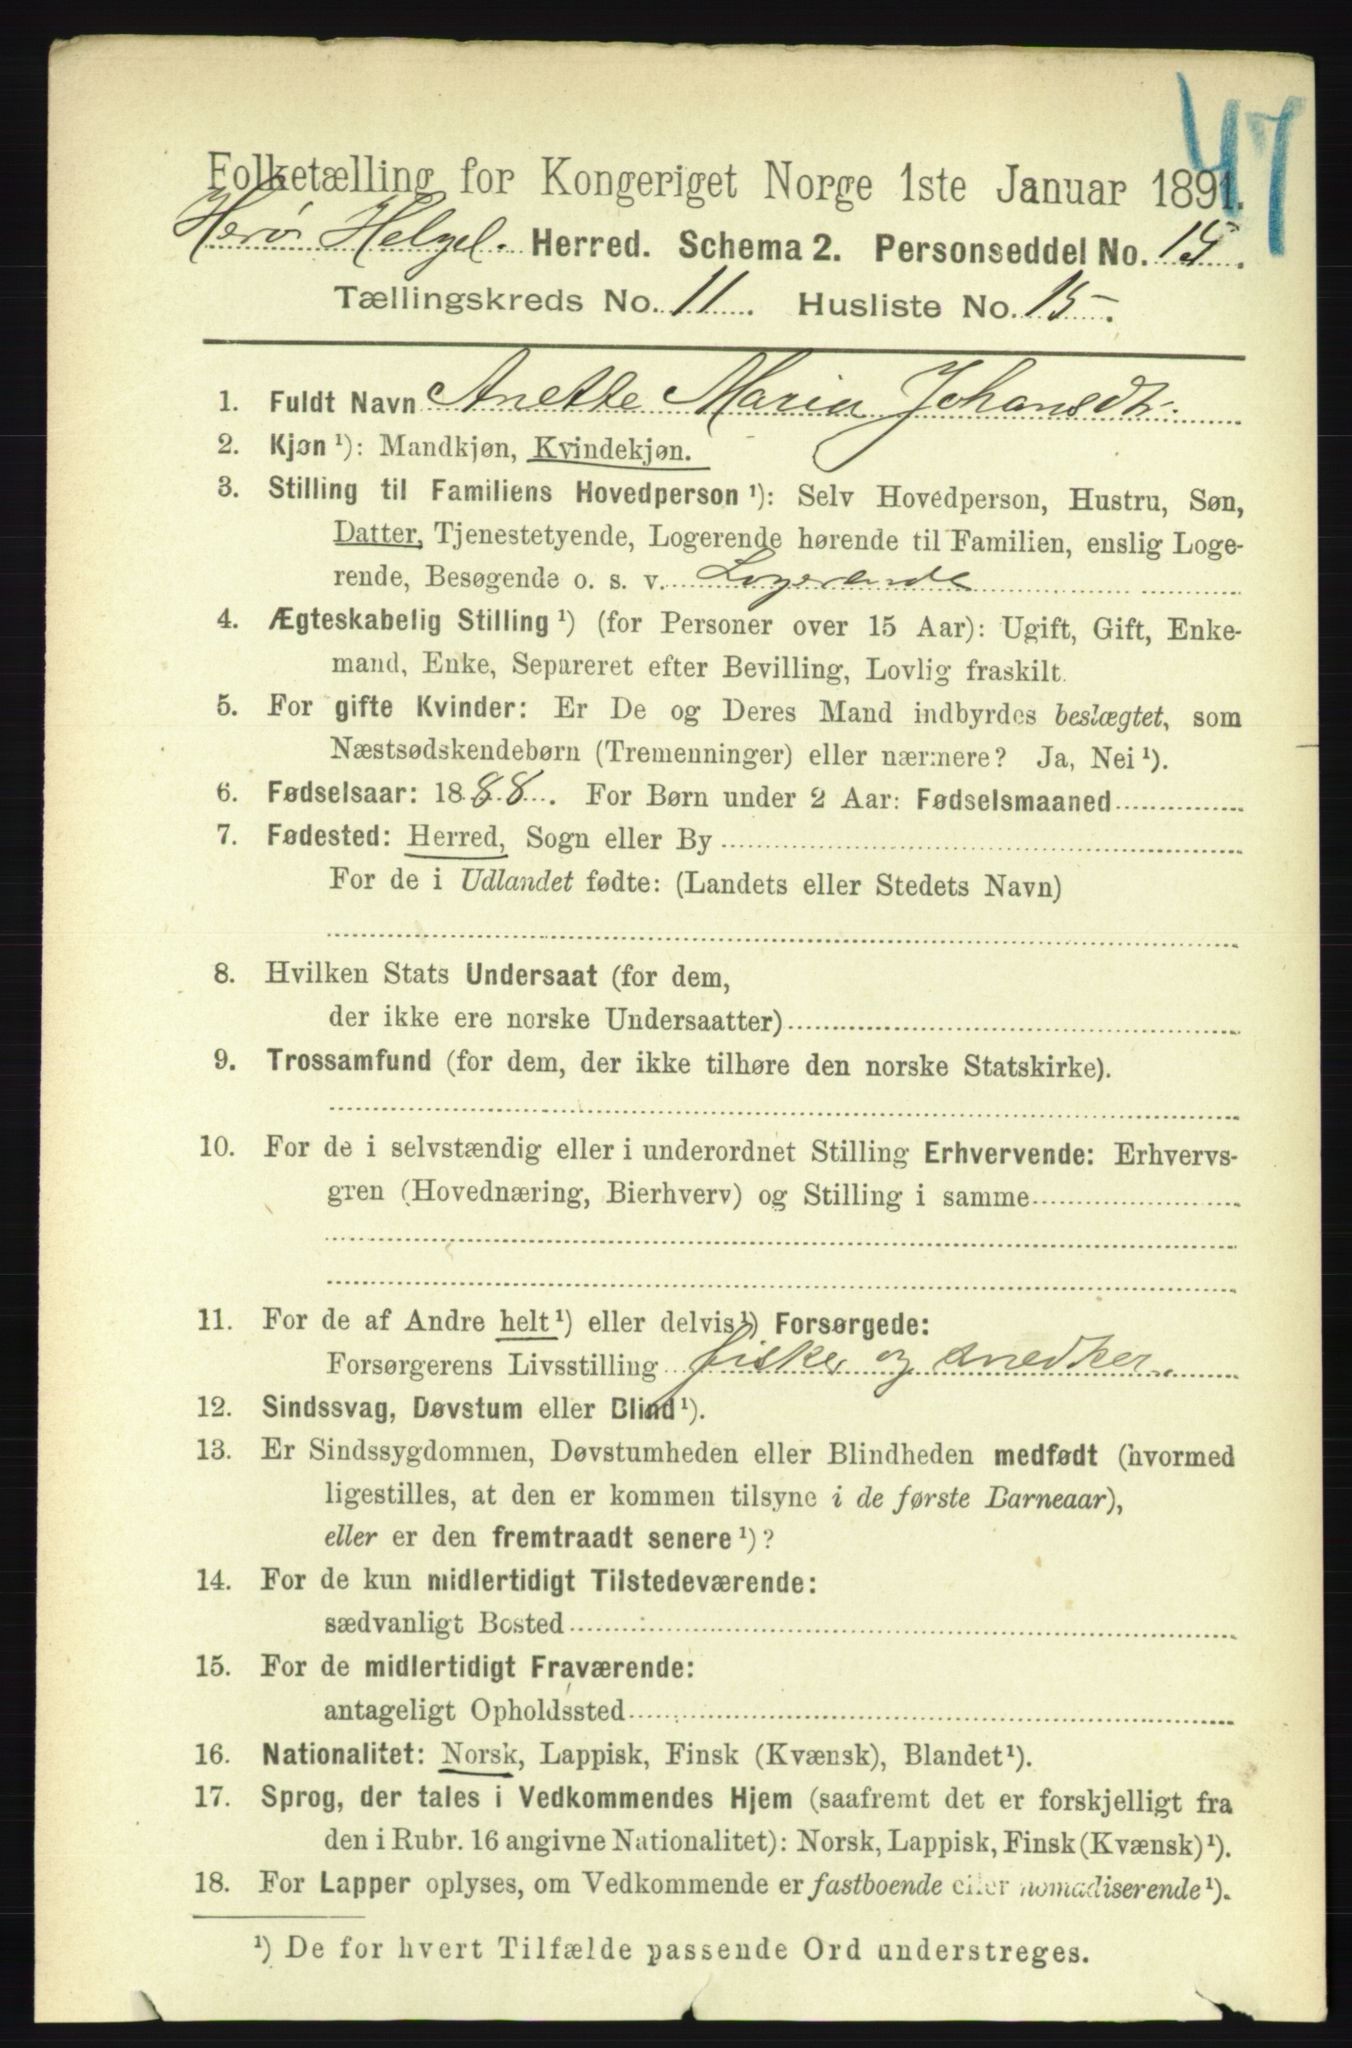 47
Folketælling for Kongeriget Norge 1ste Januar 1891.
Herø Helgel. Herred. Schema 2. Personseddel No. 15.
Tællingskreds No. 11. Husliste No. 15.
1. Fuldt Navn Anette Maria Johansdtr.
2. Kjøn ¹): Mandkjøn, Kvindekjøn.
3. Stilling til Familiens Hovedperson ¹): Selv Hovedperson, Hustru, Søn,
Datter, Tjenestetyende, Logerende hørende til Familien, enslig Loge-
rende, Besøgende o. s. v. Logerende
4. Ægteskabelig Stilling ¹) (for Personer over 15 Aar): Ugift, Gift, Enke-
mand, Enke, Separeret efter Bevilling, Lovlig fraskilt.
5. For gifte Kvinder: Er De og Deres Mand indbyrdes beslægtet, som
Næstsødskendebørn (Tremenninger) eller nærmere? Ja, Nei ¹).
6. Fødselsaar: 1888. For Børn under 2 Aar: Fødselsmaaned
7. Fødested: Herred, Sogn eller By
For de i Udlandet fødte: (Landets eller Stedets Navn)
8. Hvilken Stats Undersaat (for dem,
der ikke ere norske Undersaatter)
9. Trossamfund (for dem, der ikke tilhøre den norske Statskirke).
10. For de i selvstændig eller i underordnet Stilling Erhvervende: Erhvervs-
gren (Hovednæring, Bierhverv) og Stilling i samme
11. For de af Andre helt ¹) eller delvis ¹) Forsørgede:
Forsørgerens Livsstilling fisker og snedker.
12. Sindssvag, Døvstum eller Blind ¹).
13. Er Sindssygdommen, Døvstumheden eller Blindheden medfødt (hvormed
ligestilles, at den er kommen tilsyne i de første Barneaar),
eller er den fremtraadt senere ¹)?
14. For de kun midlertidigt Tilstedeværende:
sædvanligt Bosted
15. For de midlertidigt Fraværende:
antageligt Opholdssted
16. Nationalitet: Norsk, Lappisk, Finsk (Kvænsk), Blandet ¹).
17. Sprog, der tales i Vedkommendes Hjem (saafremt det er forskjelligt fra
den i Rubr. 16 angivne Nationalitet): Norsk, Lappisk, Finsk (Kvænsk) ¹).
18. For Lapper oplyses, om Vedkommende er fastboende eller nomadiserende ¹).
¹) De for hvert Tilfælde passende Ord understreges.